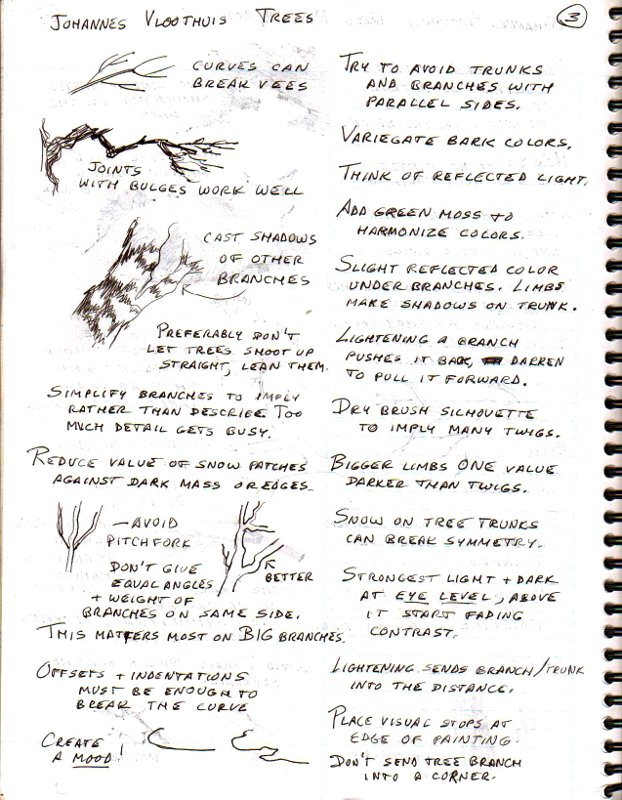 JOHANNES VLOOTHUIS TREES
3
CURVES CAN
BREAK VEES
JOINTS
WITH BULGES WORK WELL
CAST SHADOWS
OF OTHER
BRANCHES
PREFERABLY DON'T
LET TREES SHOOT UP
STRAIGHT, LEAN THEM.
SIMPLIFY BRANCHES TO IMPLY
RATHER THAN DESCRIBE TOO
MUCH DETAIL GETS BUSY.
REDUCE VALUE OF SNOW PATCHES
AGAINST DARK MASS OR EDGES.
— AVOID
PITCHFORK
DON'T GIVE
EQUAL ANGLES
+ WEIGHT OF
BRANCHES ON SAME SIDE.
BETTER
THIS MATTERS MOST ON BIG BRANCHES.
OFFSETS + INDENTATIONS
MUST BE ENOUGH TO
BREAK THE CURVE
CREATE
A MOOD!
TRY TO AVOID TRUNKS
AND BRANCHES WITH
PARALLEL SIDES.
VARIEGATE BARK COLORS.
THINK OF REFLECTED LIGHT.
ADD GREEN MOSS TO
HARMONIZE COLORS.
SLIGHT REFLECTED COLOR
UNDER BRANCHES. LIMBS
MAKE SHADOWS ON TRUNK.
LIGHTENING A BRANCH
PUSHES IT BACK, DARKEN
TO PULL IT FORWARD.
DRY BRUSH SILHOUETTE
TO IMPLY MANY TWIGS.
BIGGER LIMBS ONE VALUE
DARKER THAN TWIGS.
SNOW ON TREE TRUNKS
CAN BREAK SYMMETRY.
STRONGEST LIGHT + DARK
AT EYE LEVEL, ABOVE
IT START FADING
CONTRAST.
LIGHTENING SENDS BRANCH/TRUNK
INTO THE DISTANCE.
PLACE VISUAL STOPS AT
EDGE OF PAINTING.
DON'T SEND TREE BRANCH
INTO A CORNER.